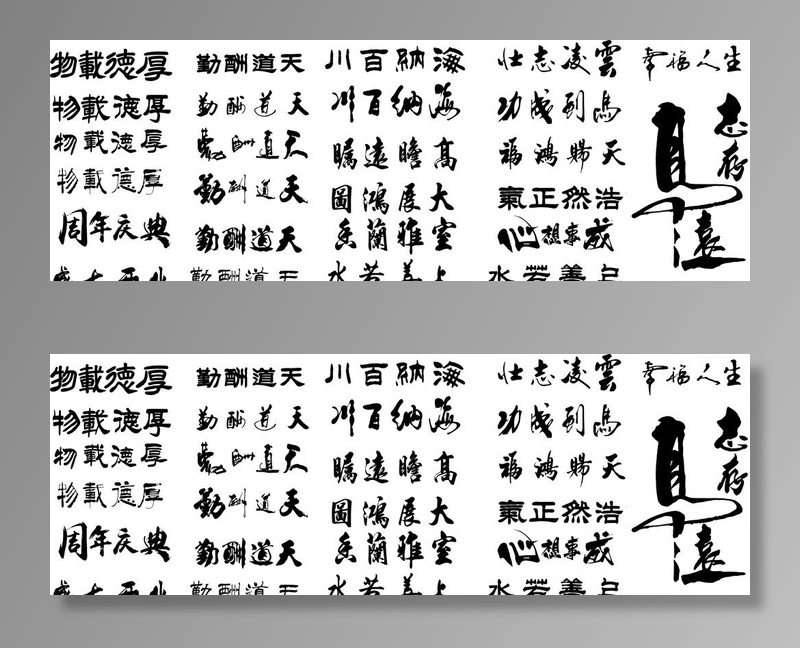 厚德載物
厚德載物
厚德載物
厚德載物
周年庆典
天道酬勤
天道酬勤
天道酬勤
天道酬勤
天道酬勤
海納百川
海納百川
高瞻遠矚
大展鴻圖
室雅蘭香
壮志凌雲
馬到成功
天賜鴻福
浩然正氣
心想事成
幸福人生
志存高遠
厚德載物
厚德載物
厚德載物
厚德載物
周年庆典
天道酬勤
天道酬勤
天道酬勤
天道酬勤
天道酬勤
海納百川
海納百川
高瞻遠矚
大展鴻圖
室雅蘭香
壮志凌雲
馬到成功
天賜鴻福
浩然正氣
心想事成
幸福人生
志存高遠